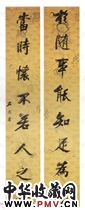 隨事能知足為
當時懷不若人之
中华收藏网